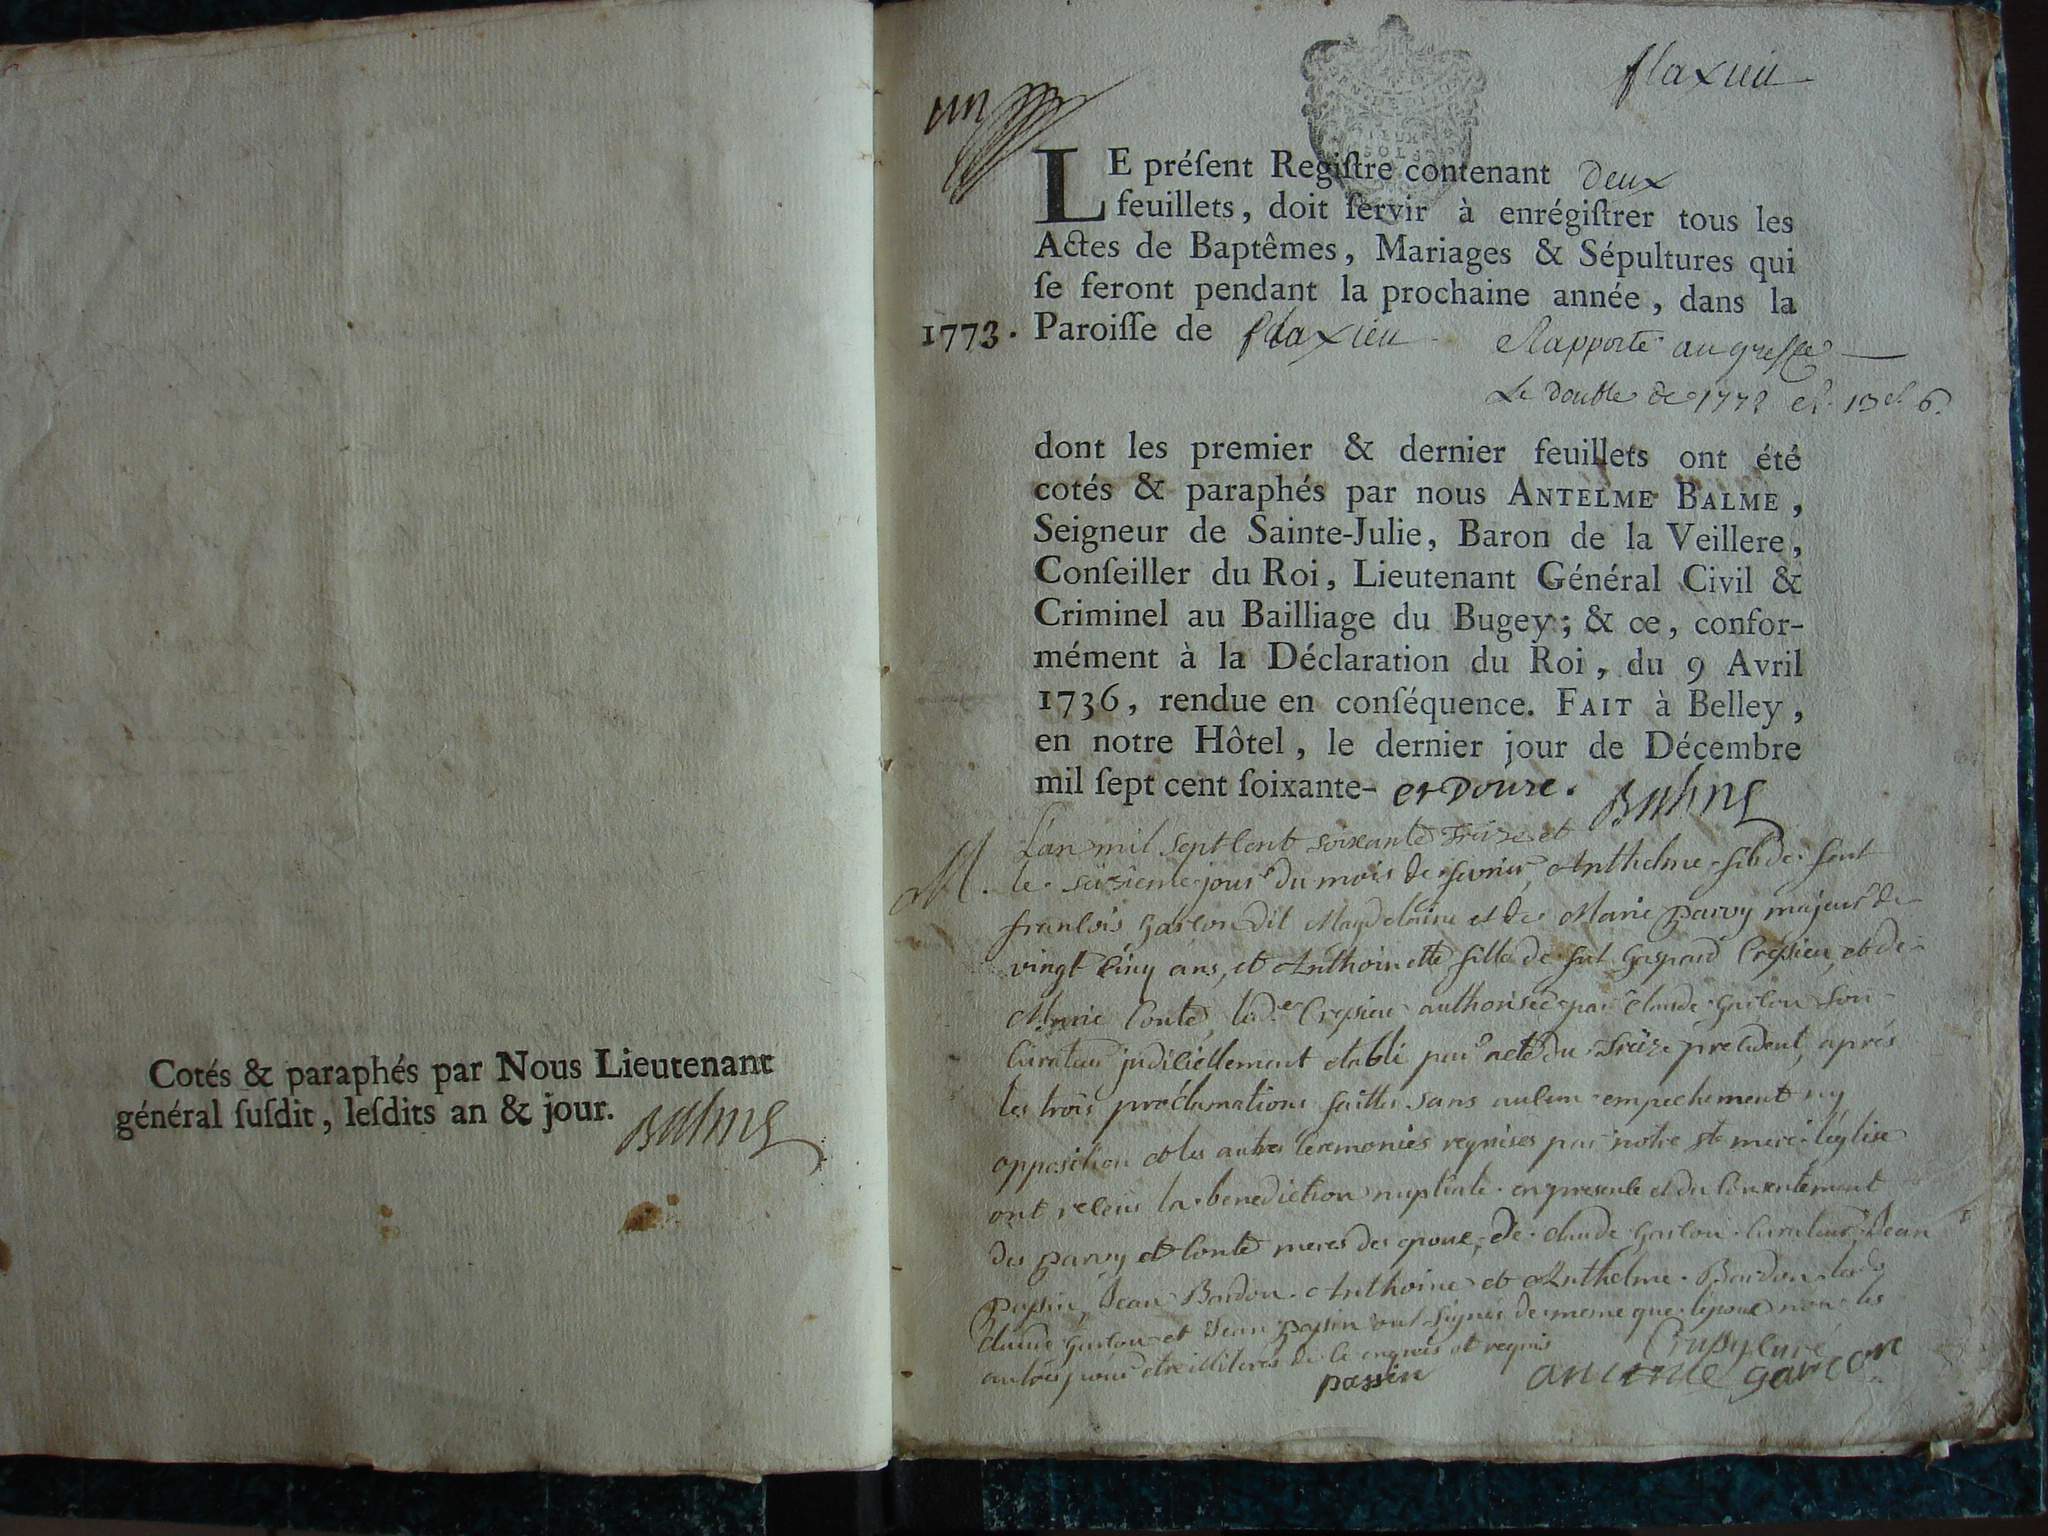 Cotés & paraphés par Nous Lieutenant
général ſuſdit, leſdits an & jour. Balme
flaxieu
un
SOLS
LE préſent Regiſtre contenant deux
feuillets, doit ſervir à enrégiſtrer tous les
Actes de Baptêmes, Mariages & Sépultures qui
ſe feront pendant la prochaine année, dans la
1773. Paroiſſe de flaxieu Rapporté au greffe
Le double de 1772
dont les premier & dernier feuillets ont été
cotés & paraphés par nous ANTELME BALME,
Seigneur de Sainte-Julie, Baron de la Veillere,
Conſeiller du Roi, Lieutenant Général Civil &
Criminel au Bailliage du Bugey; & ce, confor-
mément à la Déclaration du Roi, du 9 Avril
1736, rendue en conſéquence. FAIT à Belley,
en notre Hôtel, le dernier jour de Décembre
mil ſept cent ſoixante- et Douze. Balme
L'an mil sept cent soixante treize et
M. le seizieme jour du mois de fevrier Anthelme fils de feut
francois garcon dit Magdelaine et de Marie parvy majeur de
vingt cinq ans, et Anthoinette fille de fut gaspard Crepsieu, et de
Marie Conte, lad.e Crepsieu authorisée par Claude garcon son
curateur judiciellement etabli par acte du treize precedent, aprés
les trois proclamations faittes sans aucun empechement ny
opposition et les autres ceremonies requises par notre ste mere l'eglise
ont recus la benediction nuptiale en presence et du consentement
des parvy et Conte meres des epoux, de claude garcon curateur, Jean
passin, Jean Bardon, Anthoine et Anthelme Bardon
claude garcon et Jean passin ont signés de meme que l'epoux non les
autres pour etre illiteres de ce enquis et requis curé
passin antelme garcon